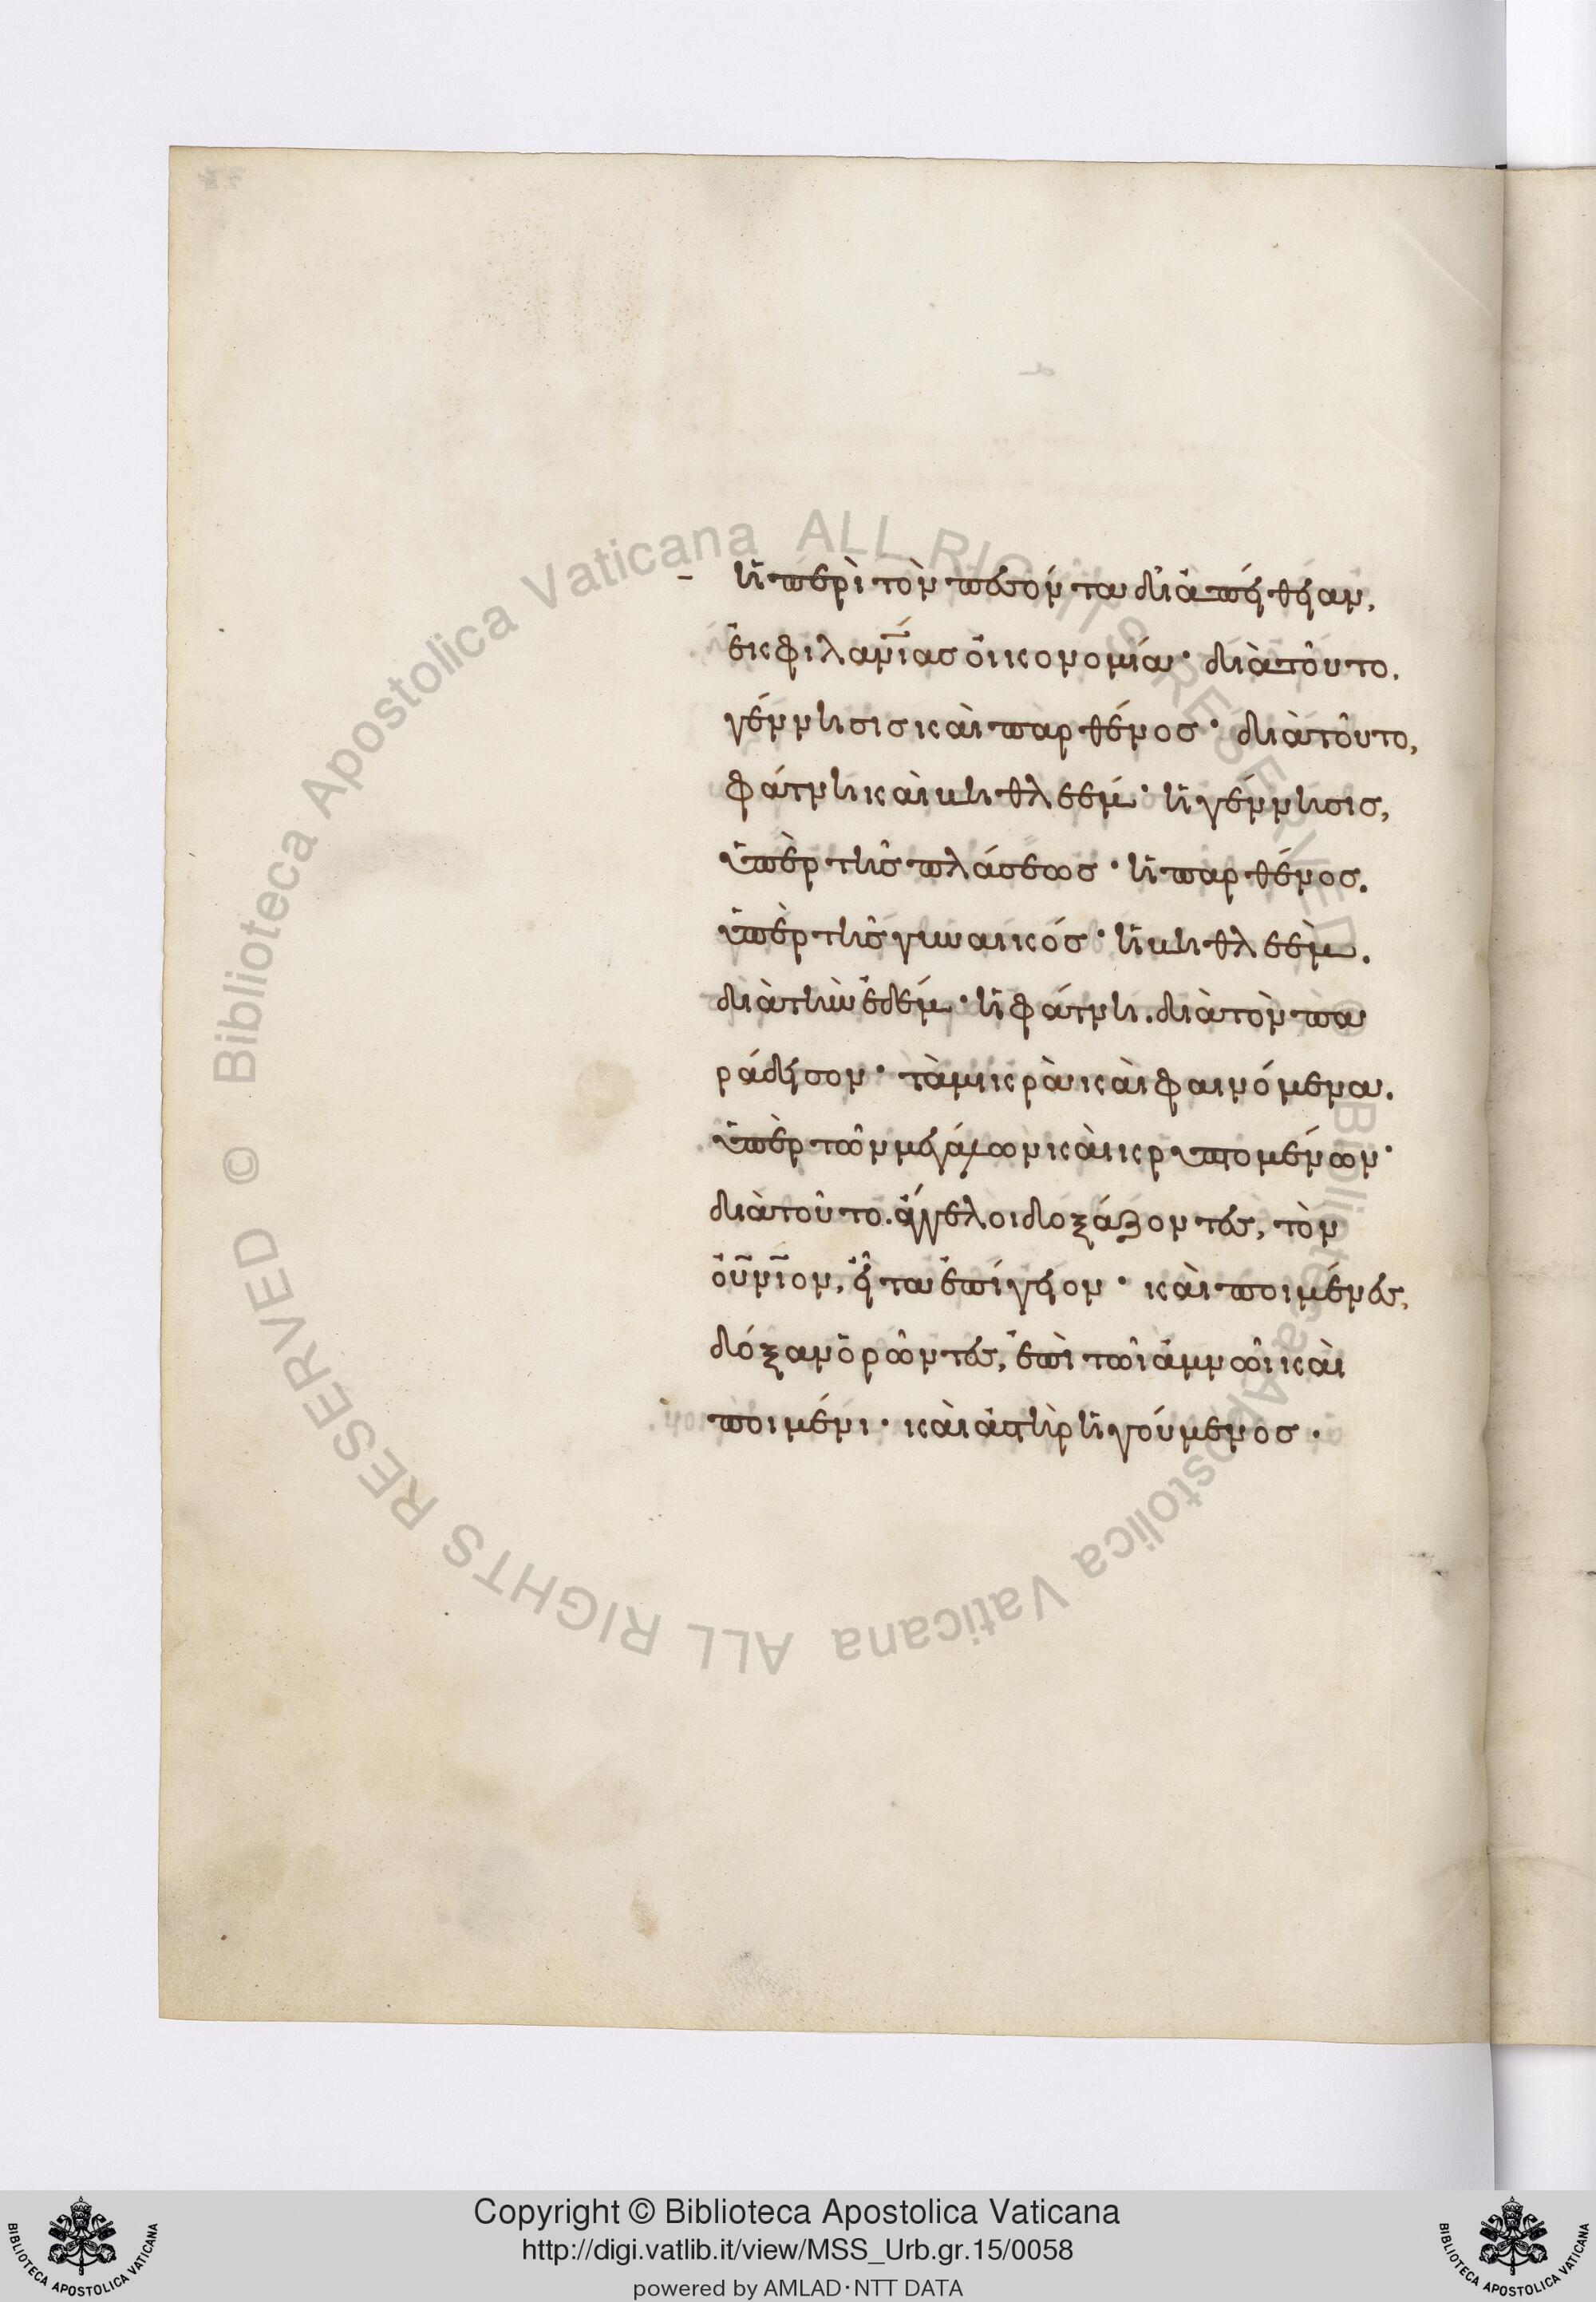 ἡ περὶ τὸν πεσόντα δι' ἀπείθειαν,
ἐκ φιλανίας οἰκονομία· διὰ τοῦτο.
γέννησις καὶ παρθένος· διὰ τοῦτο,
φάτνη καὶ βηθλεέμ· ἡ γέννησις,
ὑπὲρ τῆς πλάσεως· ἡ παρθένος.
ὑπὲρ τῆς γυναικός· ἡ βηθλεὲμ.
διὰ τὴν ἐδέμ· ἡ φάτνη. διὰ τὸν πα
ράδεισον· τὰ μικρὰ καὶ φαινόμενα.
ὑπὲρ τῶν μεγάλων καὶ κρυπτομένων·
διὰ τοῦτο. ἄγγελοι δοξάζοντες, τὸν
οὐνιον, εἶτα ἐπίγειον· καὶ ποιμένες,
δόξαν ὁρῶντες, ἐπὶ τῶι ἀμνῶι καὶ
ποιμένι· καὶ ἀστὴρ ἡγούμενος·
Biblioteca Apostolica Vaticana ALL RIGHTS RESERVED ©
Biblioteca Apostolica Vaticana ALL RIGHTS RESERVED ©
Copyright © Biblioteca Apostolica Vaticana
http://digi.vatlib.it/view/MSS_Urb.gr.15/0058
powered by AMLAD·NTT DATA
BIBLIOTECA APOSTOLICA VATICANA
BIBLIOTECA APOSTOLICA VATICANA